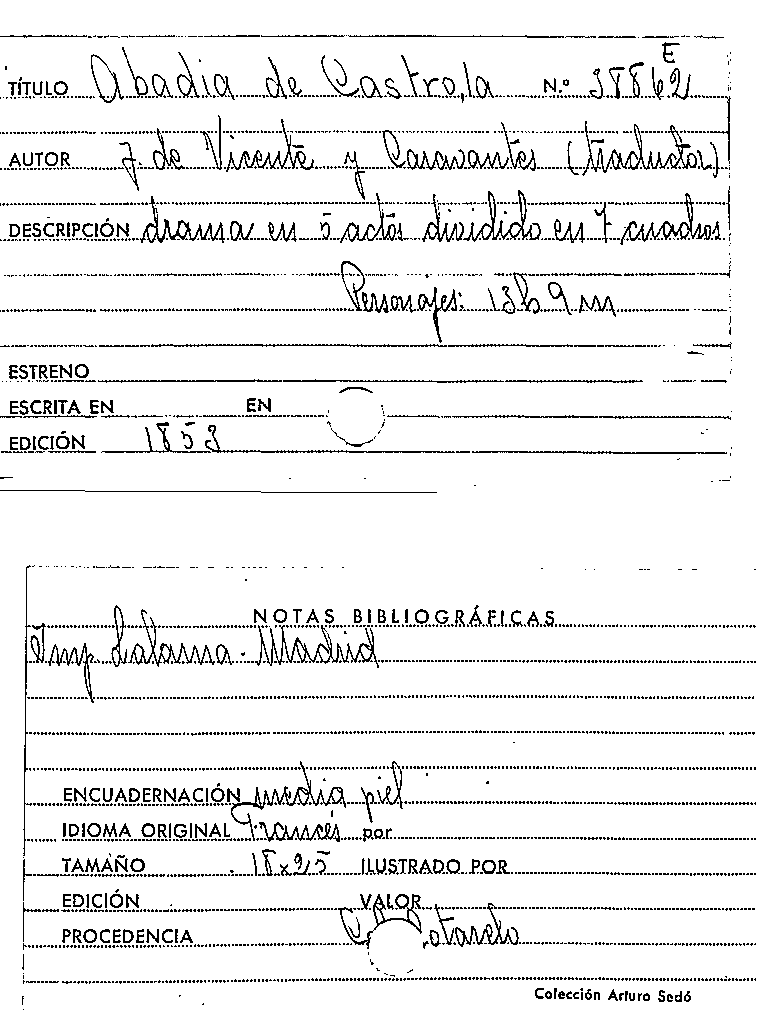 E
TÍTULO Abadia de Castro, la N.º 38862
AUTOR J. de Vicente y Caravantes (traductor)
DESCRIPCIÓN drama en 5 actos dividido en 7 cuadros
Personajes: 13 h 9 m
ESTRENO
ESCRITA EN EN
EDICIÓN 1853
NOTAS BIBLIOGRÁFICAS
Imp. Lalama. Madrid
ENCUADERNACIÓN media piel
IDIOMA ORIGINAL Francés por
TAMAÑO 18x25 ILUSTRADO POR
EDICIÓN VALOR
PROCEDENCIA Cotarelo
Colección Arturo Sedó